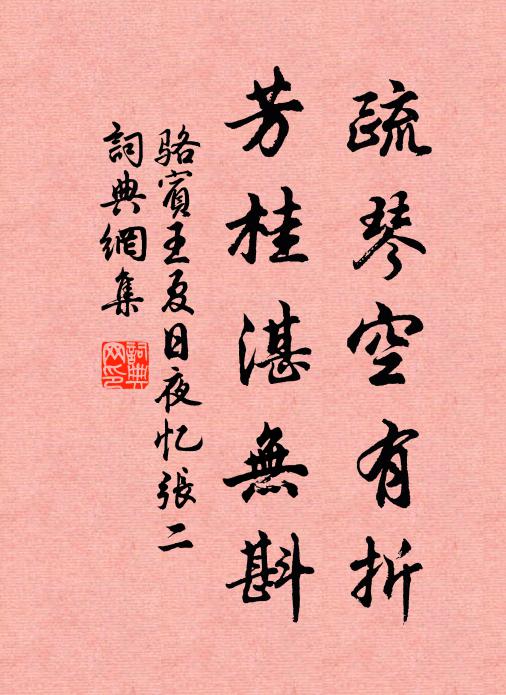 疏琴空有折
芳桂湛無斟
骆賓王夏日夜忆張二
詞典網集
詞典網印